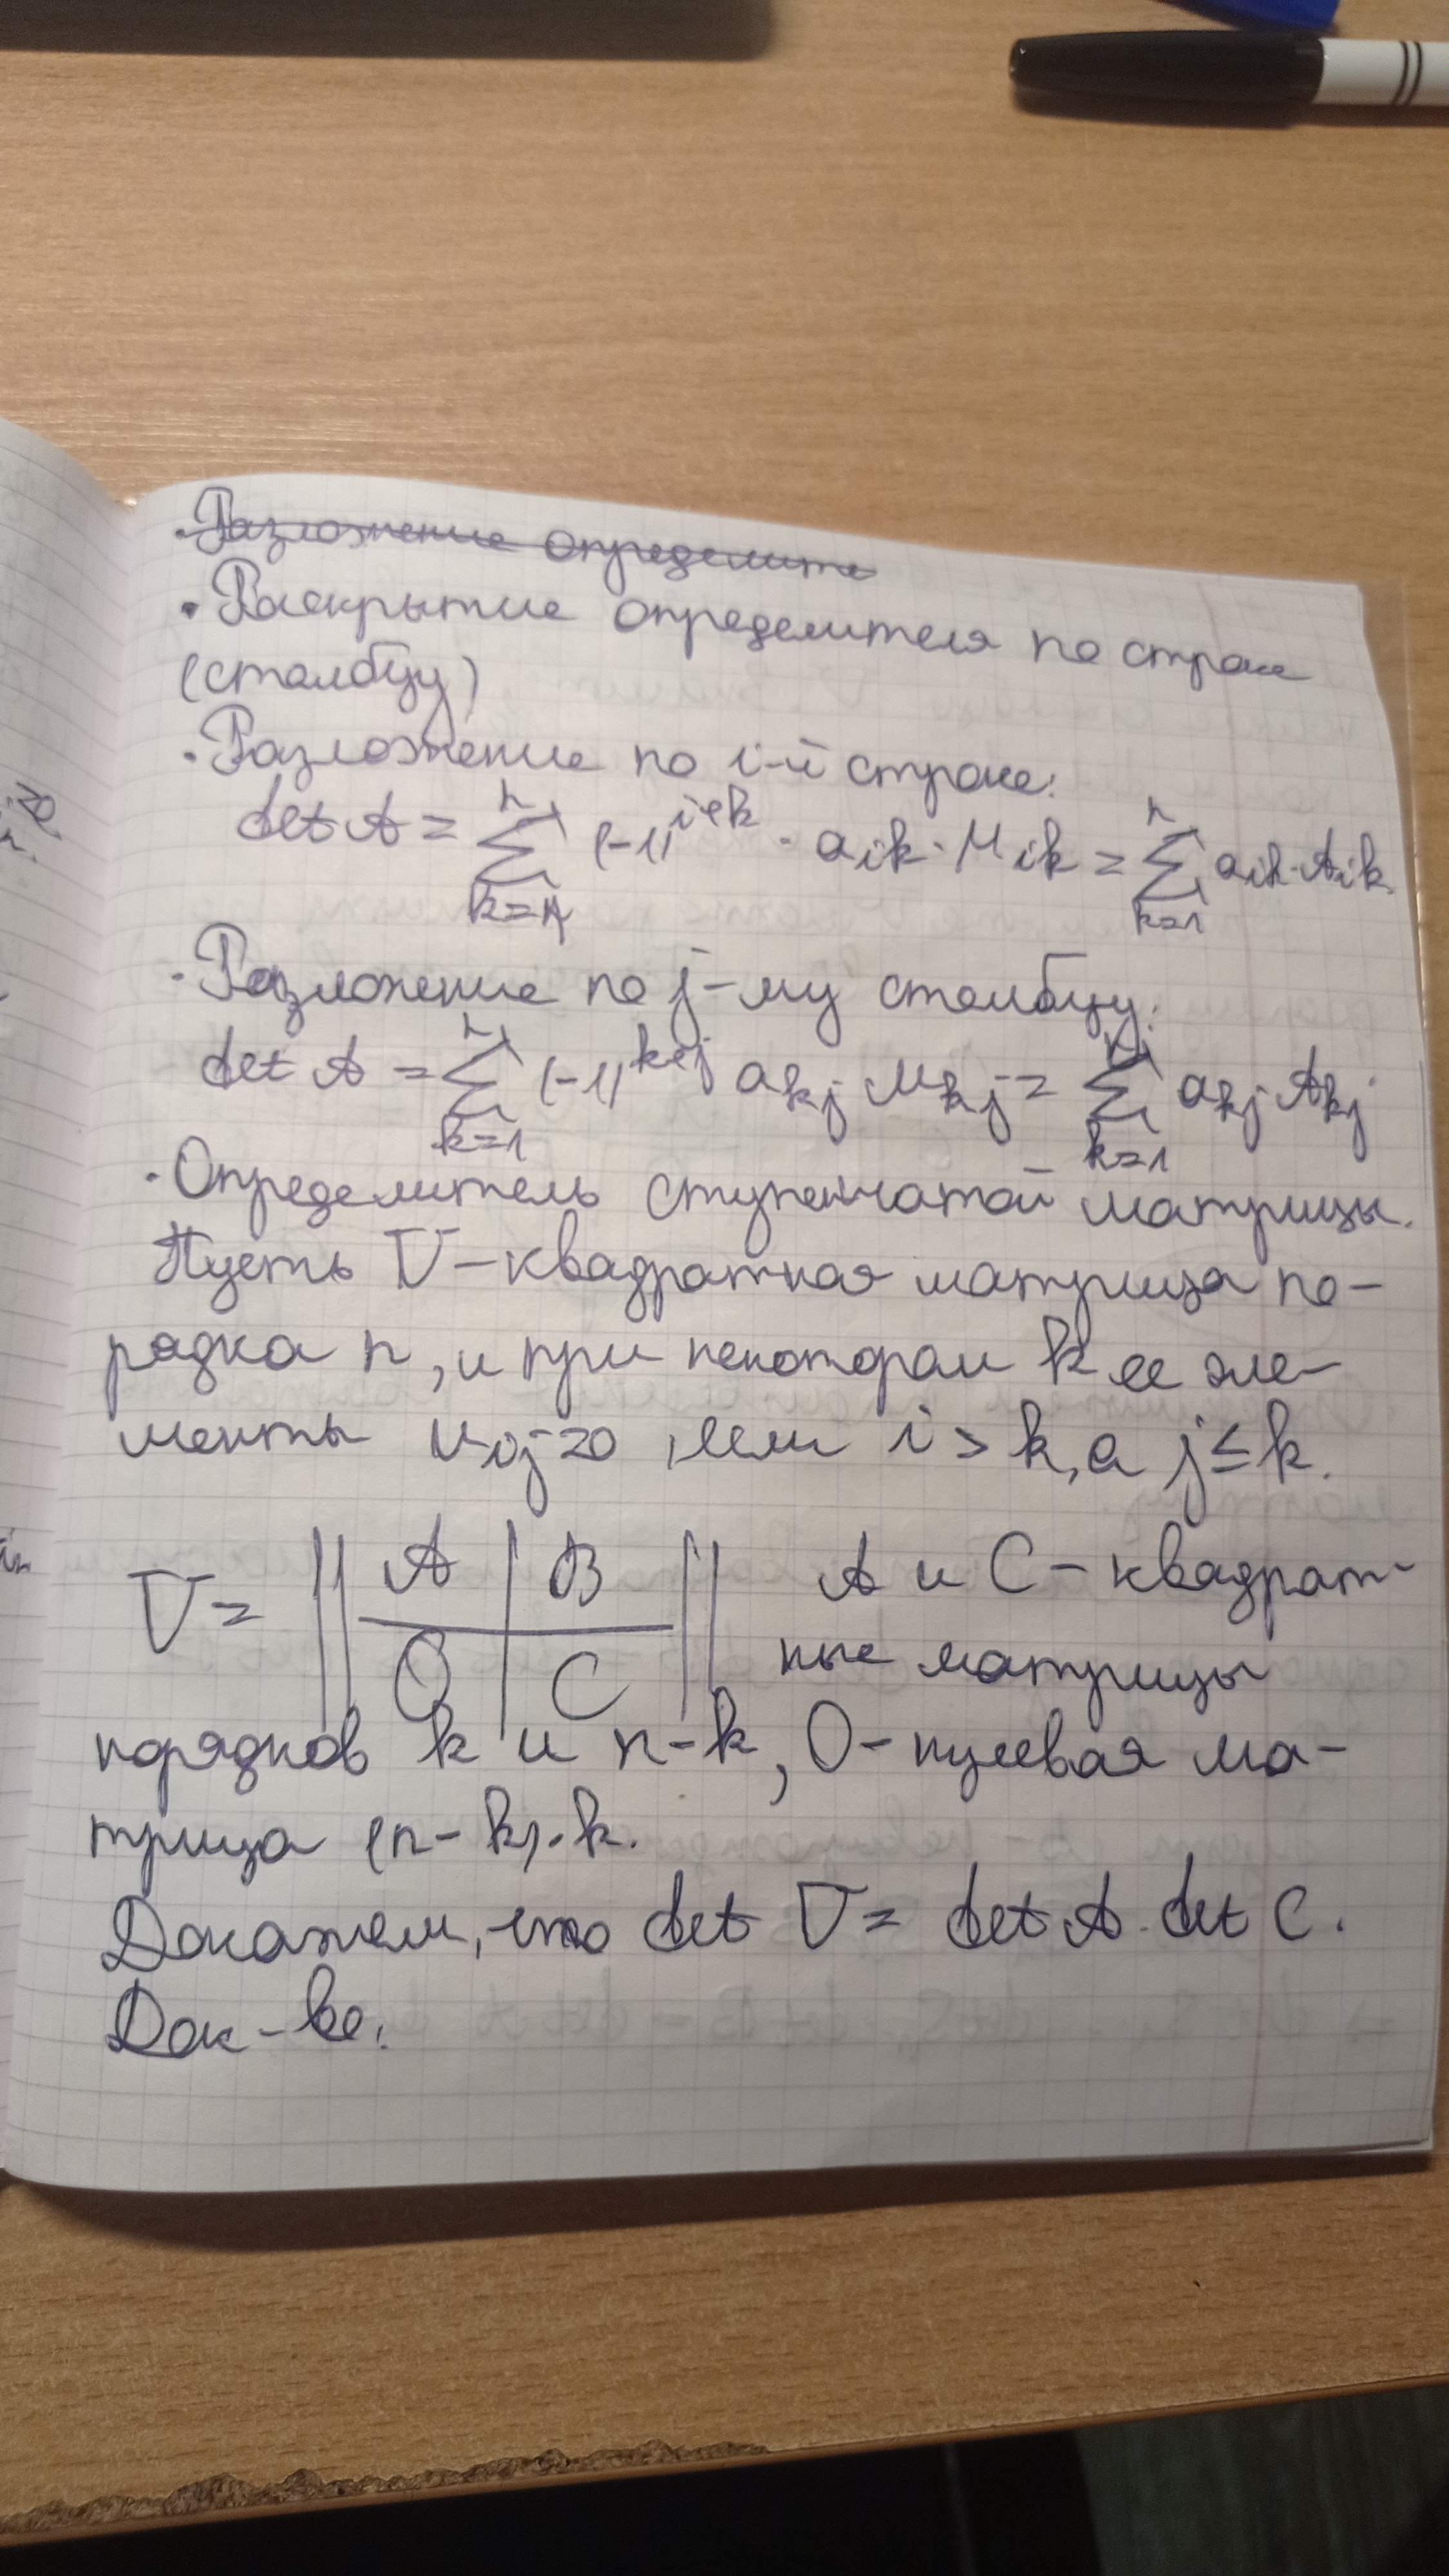 · Разложение определите
· Раскрытие определителя по строке
(столбцу)
· Разложение по i-й строке:
det A = ∑ₖ₌₁ⁿ (-1)^{i+k} · a_{ik} · M_{ik} = ∑ₖ₌₁ⁿ a_{ik} · A_{ik}.
· Разложение по j-му столбцу:
det A = ∑ₖ₌₁ⁿ (-1)^{k+j} a_{kj} M_{kj} = ∑ₖ₌₁ⁿ a_{kj} · A_{kj}
· Определитель ступенчатой матрицы.
Пусть V – квадратная матрица по-
рядка n, и при некотором k ее эле-
менты v_{ij} = 0, если i > k, а j ≤ k.
V = || A | B || А и С – квадрат-
|| O | C || ные матрицы
порядков k и n-k, O – нулевая ма-
трица (n-k)·k.
Докажем, что det V = det A · det C.
Док-во: